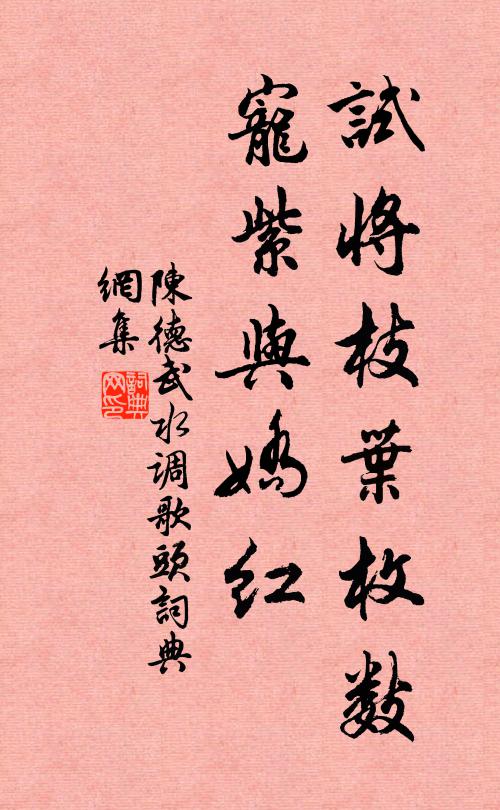 試將枝葉枚数
寵紫與嬌红
陳德武水调歌頭詞典
網集
詞典
网印